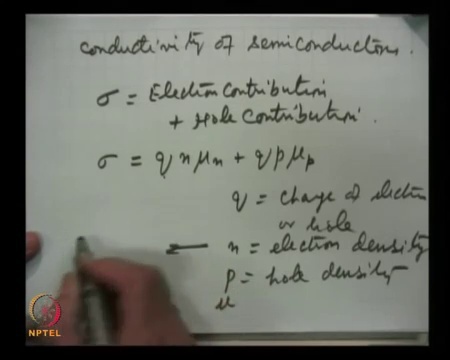 conductivity of semiconductors.
σ = Electron contribution
+ Hole contribution.
σ = q n μn + q p μp
q = charge of electron
or hole
n = electron density
p = hole density
μ
NPTEL